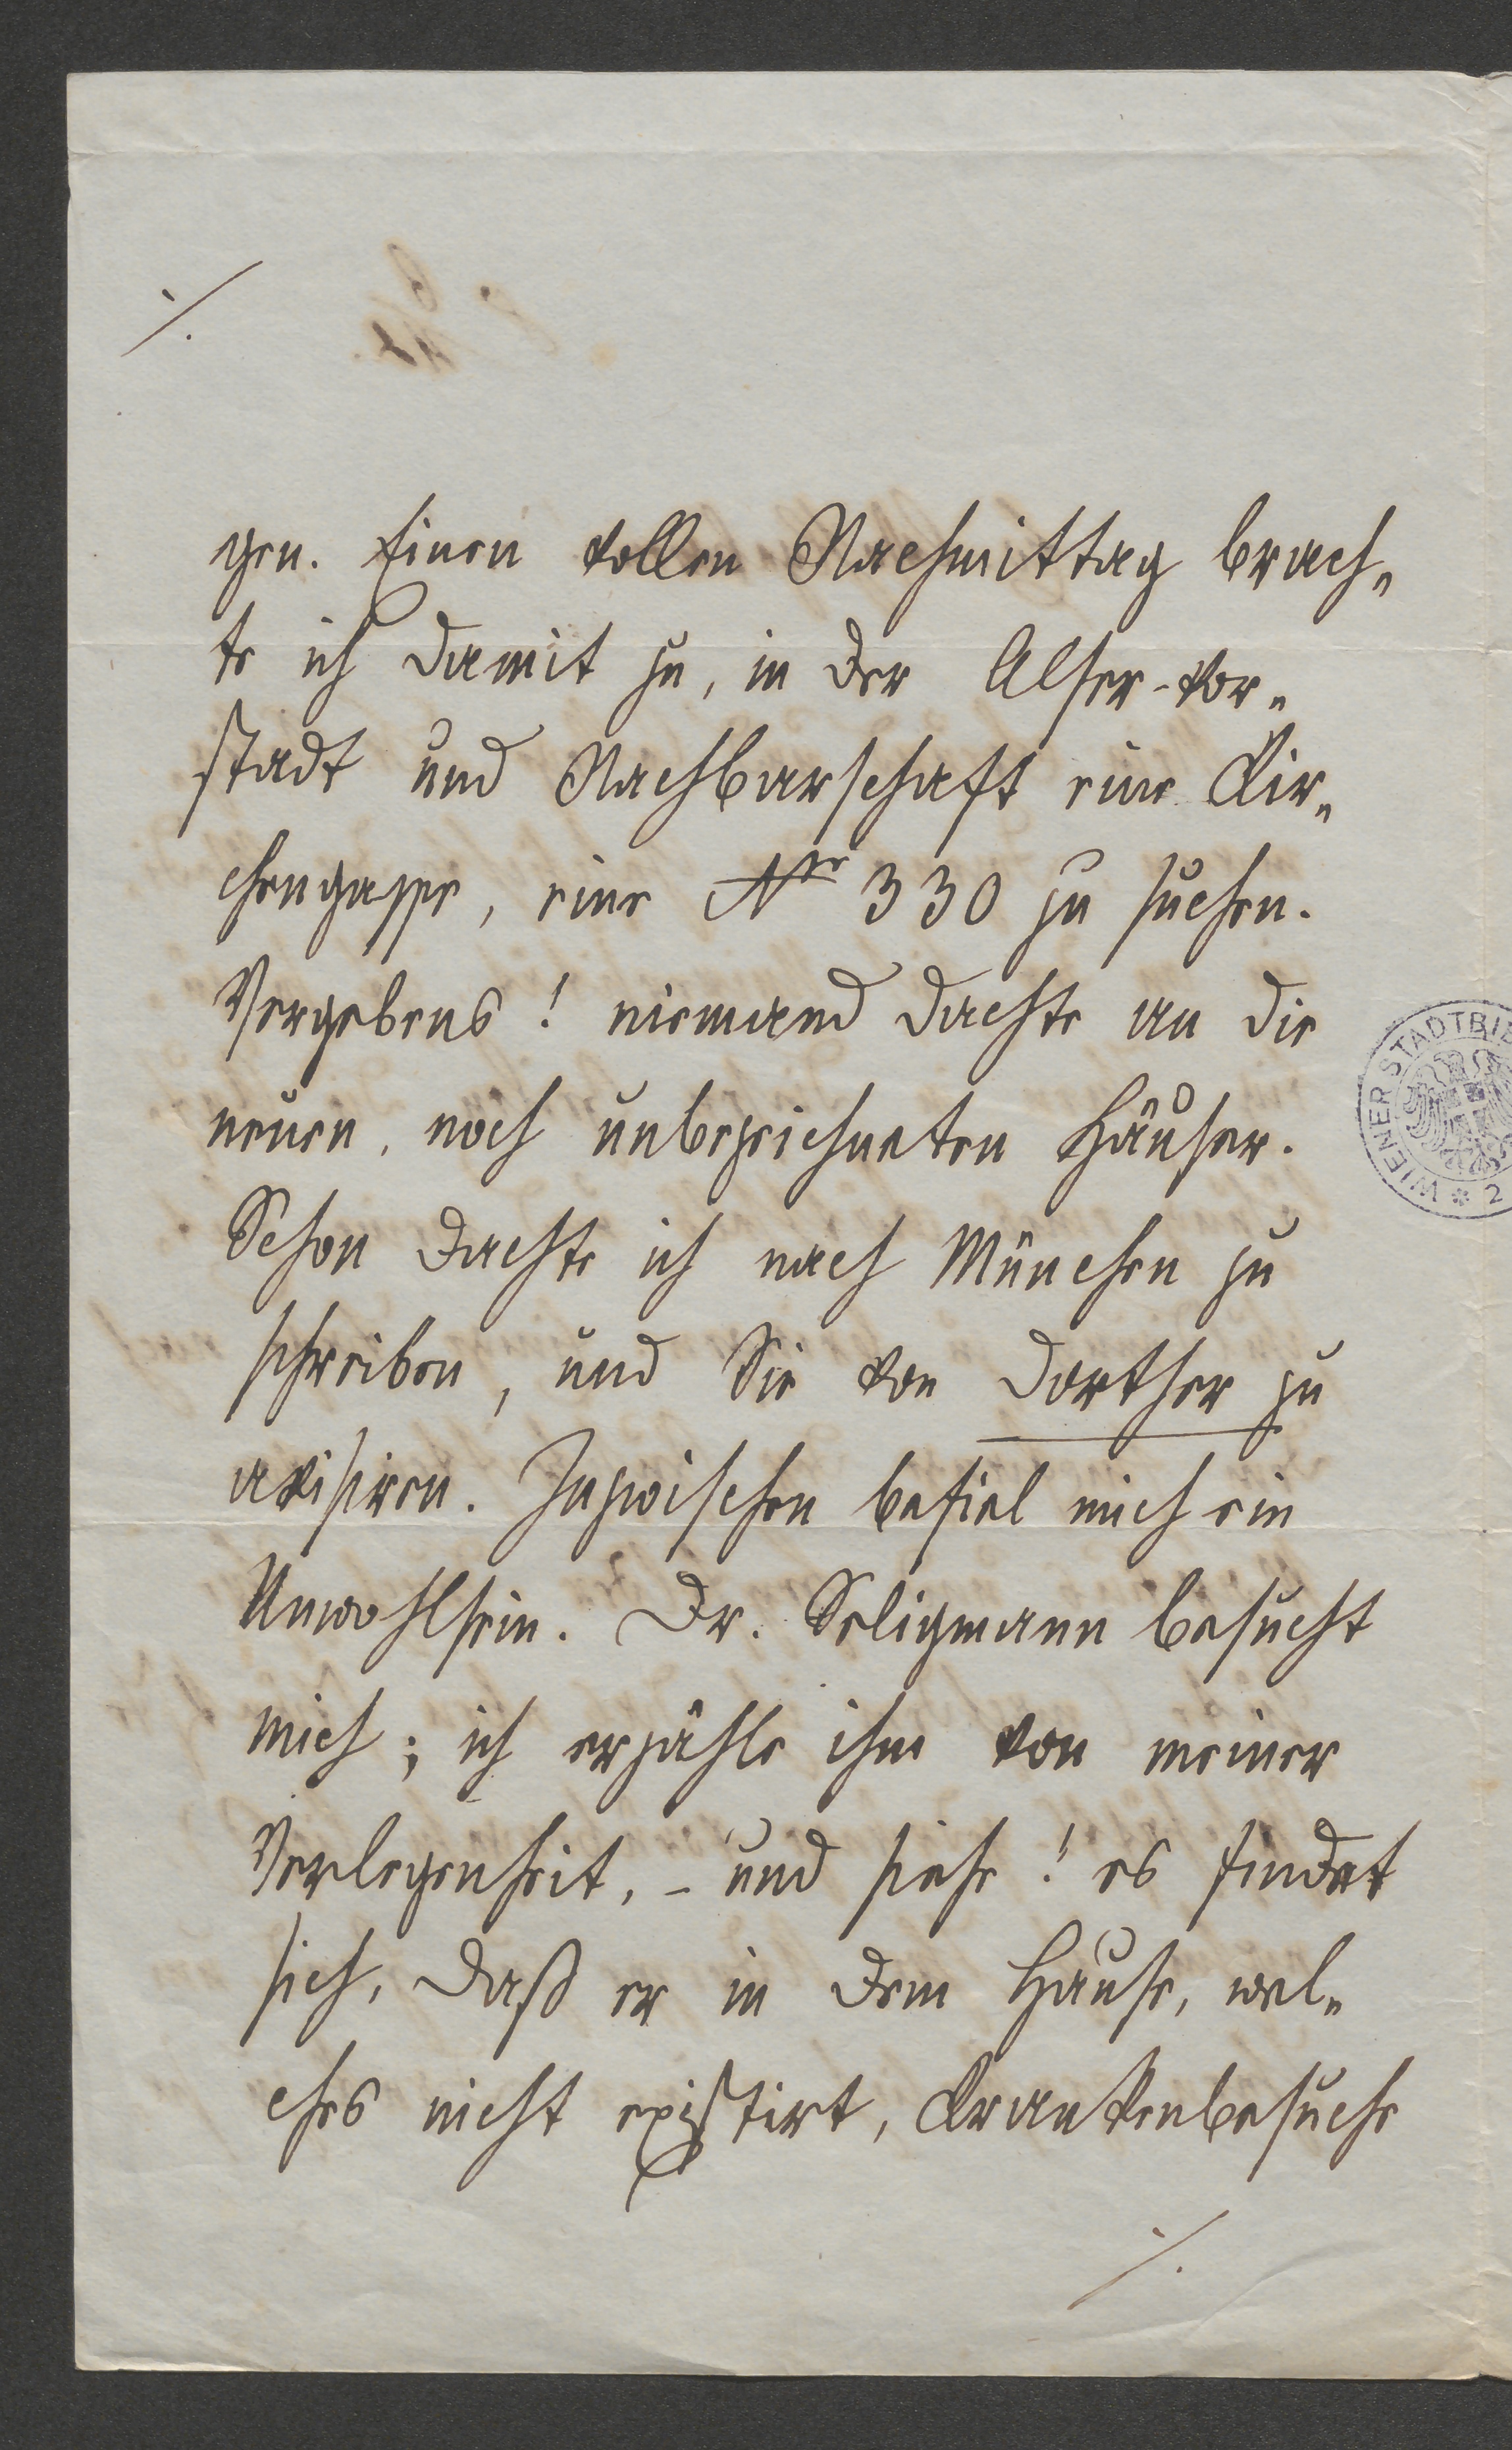 ./.
gen. Einen vollen Nachmittag brach„
te ich damit zu, in der Alser-Vor„
stadt und Nachbarschaft eine Kir„
chengasse, eine Nro 330 zu suchen.
Vergebens! niemand dachte an die
neuen, noch unbezeichneten Häuser.
Schon dachte ich nach München zu
schreiben, und Sie von dorther zu
avisiren. Inzwischen befiel mich ein
Unwohlsein. Dr. Seligmann besucht
mich; ich erzähle ihm von meiner
Verlegenheit, – und siehe! es findet
sich, daß er in dem Hause, wel„
ches nicht existirt, Krankenbesuche
./.
WIENER STADTBI
* 2